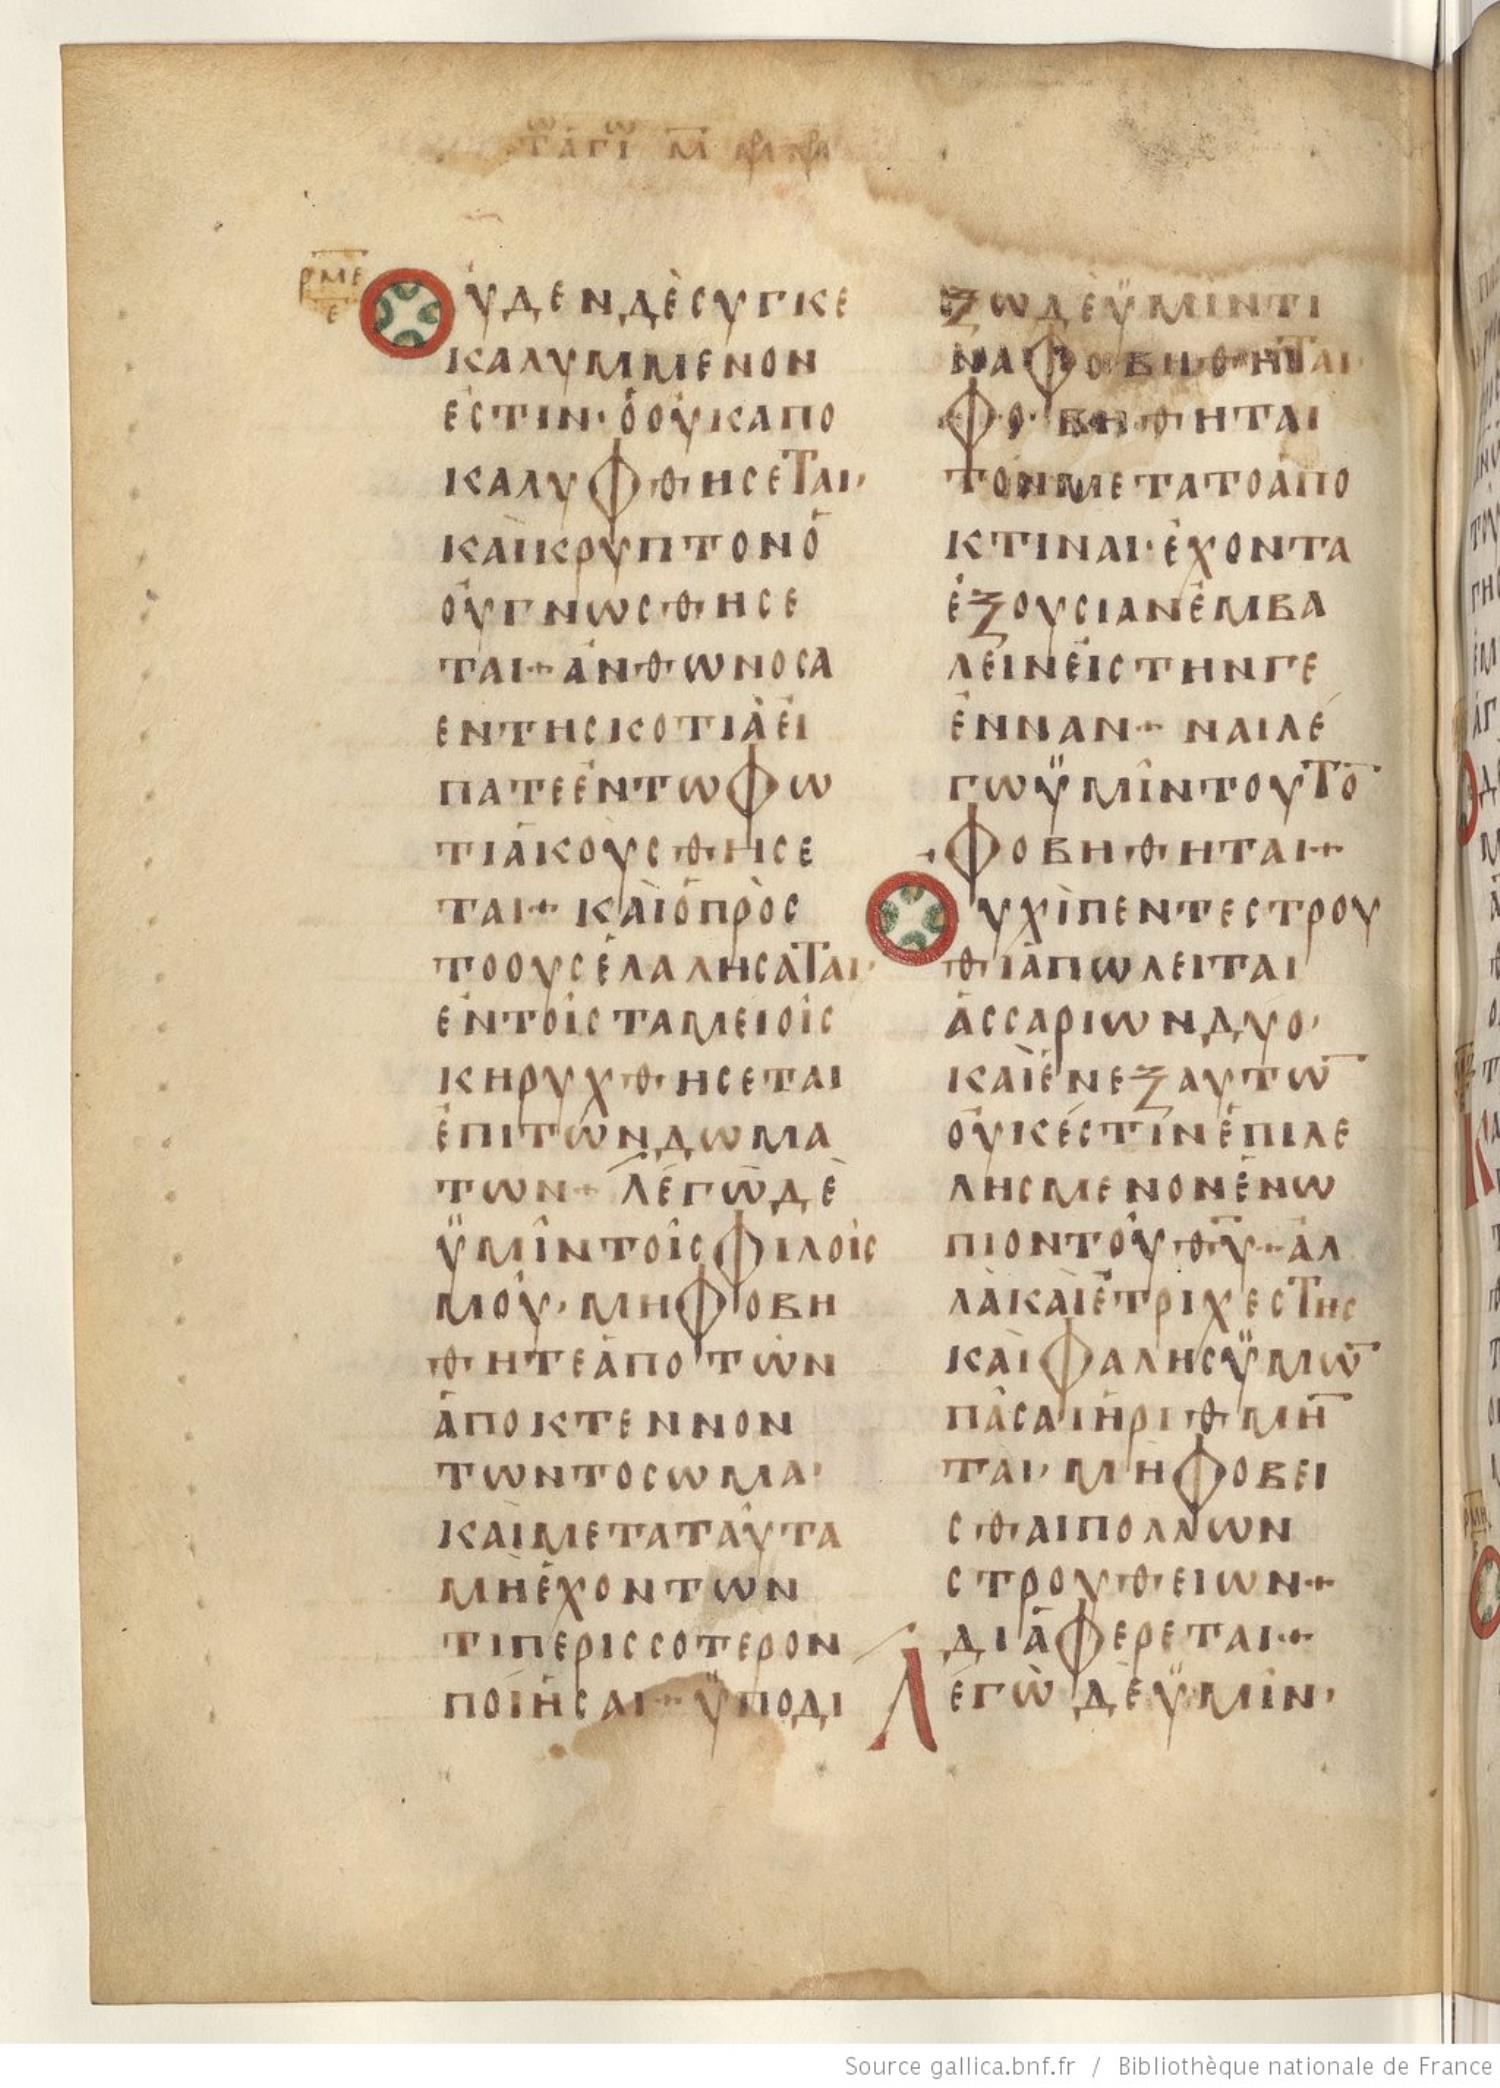 ΡΜΕ
Ε
ΟΥΔΕΝΔὲСΥΓΚΕ
ΚΑΛΥΜΜΕΝΟΝ
ΕСΤΙΝ·ὉΟΥΚΑΠΟ
ΚΑΛΥΦΘΗСΕΤΑΙ·
ΚΑΙΚΡΥΠΤΟΝὉ
ΟΥΓΝΩСΘΗСΕ
ΤΑΙ+ΑΝΘΩΝΟСΑ
ΕΝΤΗСΚΟΤΙΑΕΙ
ΠΑΤΕΕΝΤΩΦΩ
ΤΙΑΚΟΥСΘΗСΕ
ΤΑΙ+ ΚΑΙΟΠΡΟС
ΤΟΟΥСΕΛΑΛΗСΑΤΑΙ·
ΕΝΤΟΙСΤΑΜΕΙΟΙС
ΚΗΡΥΧΘΗСΕΤΑΙ
ΕΠΙΤΩΝΔΩΜΑ
ΤΩΝ+ ΛΕΓΩΔΕ
ΫΜΙΝΤΟΙСΦΙΛΟΙС
ΜΟΥ·ΜΗΦΟΒΗ
ΘΗΤΕΑΠΟΤΩΝ
ΑΠΟΚΤΕΝΝΟΝ
ΤΩΝΤΟСΩΜΑ·
ΚΑΙΜΕΤΑΤΑΥΤΑ
ΜΗΕΧΟΝΤΩΝ
ΤΙΠΕΡΙССΟΤΕΡΟΝ
ΠΟΙΗСΑΙ+ΫΠΟΔΙ
ΞΩΔΕΫΜΙΝΤΙ
ΝΑΦΟΒΗΘΗΤΑΙ·
ΦΟΒΗΘΗΤΑΙ
ΤΟΝΜΕΤΑΤΟΑΠΟ
ΚΤΙΝΑΙ·ΕΧΟΝΤΑ
ΕΞΟΥСΙΑΝΕΜΒΑ
ΛΕΙΝΕΙСΤΗΝΓΕ
ΕΝΝΑΝ+ ΝΑΙΛΕ
ΓΩΫΜΙΝΤΟΥΤΟ̅
ΦΟΒΗΘΗΤΑΙ+
ΟΥΧΙΠΕΝΤΕСΤΡΟΥ
ΘΙΑΠΩΛΕΙΤΑΙ
ΑССΑΡΙΩΝΔΥΟ·
ΚΑΙΕΝΕΞΑΥΤΩ̅
ΟΥΚΕСΤΙΝΕΠΙΛΕ
ΛΗСΜΕΝΟΝΕΝΩ
ΠΙΟΝΤΟΥΘ̅Υ̅+ΑΛ
ΛΑΚΑΙΕΤΡΙΧΕСΤΗС
ΚΑΙΦΑΛΗСΫΜΩ̅
ΠΑСΑΙΗΡΙΘΜΗ̅
ΤΑΙ·ΜΗΦΟΒΕΙ
СΘΑΙΠΟΛΛΩΝ
СΤΡΟΥΘΕΙΩΝ+
ΔΙΑΦΕΡΕΤΑΙ+
ΛΕΓΩΔΕΫΜΙΝ·
Source gallica.bnf.fr / Bibliothèque nationale de France